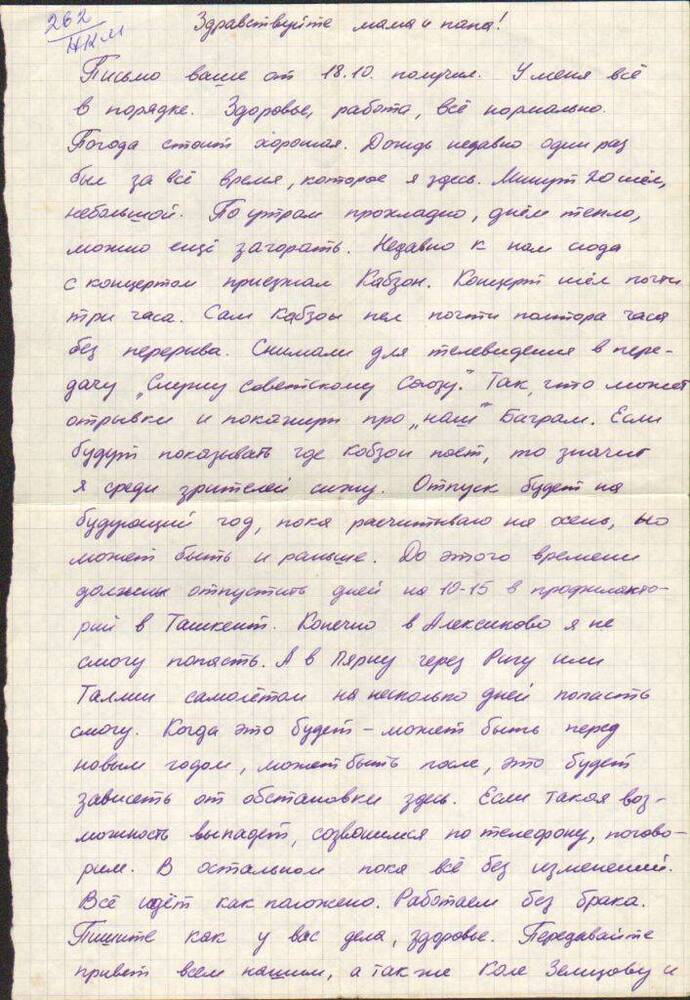 262
НКМ
Здравствуйте мама и папа!
Письмо ваше от 18.10. получил. У меня всё
в порядке. Здоровье, работа, всё нормально.
Погода стоит хорошая. Дождь недавно один раз
был за всё время, которое я здесь. Минут 20 шёл,
небольшой. По утрам прохладно, днём тепло,
можно ещё загорать. Недавно к нам сюда
с концертом приезжал Кабзон. Концерт шёл почти
три часа. Сам Кабзон пел почти полтора часа
без перерыва. Снимали для телевидения в пере-
дачу „Служу Советскому Союзу." Так, что может
отрывки и покажут про „наш" Баграм. Если
будут показывать где Кобзон поёт, то значит
я среди зрителей сижу. Отпуск будет на
будующий год, пока расчитываю на осень, но
может быть и раньше. До этого времени
должны отпустить дней на 10-15 в профилакто-
рий в Ташкент. Конечно в Алексиково я не
смогу попасть. А в Пярну через Ригу или
Таллин самолётом на несколько дней попасть
смогу. Когда это будет – может быть перед
новым годом, может быть после, это будет
зависеть от обстановки здесь. Если такая воз-
можность выпадет, созвонимся по телефону, погово-
рим. В остальном пока всё без изменений.
Всё идёт как положено. Работаем без брака.
Пишите как у вас дела, здоровье. Передавайте
привет всем нашим, а так же Коле Земцову и